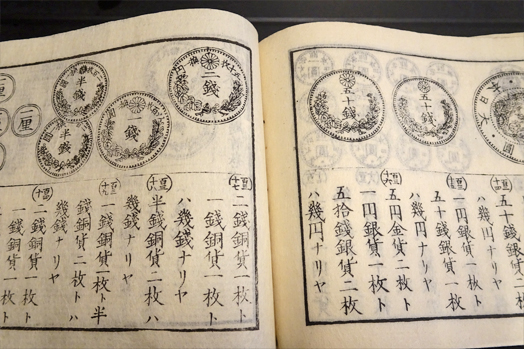 五十錢
五十錢銀貨一枚ト
ハ幾円ナリヤ
一円銀貨一枚ト
五十錢銀貨一枚
ハ幾円ナリヤ
五円金貨二枚ト
一円銀貨一枚ト
五拾錢銀貨二枚
ハ幾円ナリヤ
二錢
一錢
半錢
半錢
厘
厘
二錢銅貨一枚ト
一錢銅貨一枚ト
ハ幾錢ナリヤ
半錢銅貨二枚ハ
幾錢ナリヤ
一錢銅貨一枚ト半
錢銅貨一枚トハ
幾錢ナリヤ
一錢銅貨一枚ト
一錢銅貨一枚ト